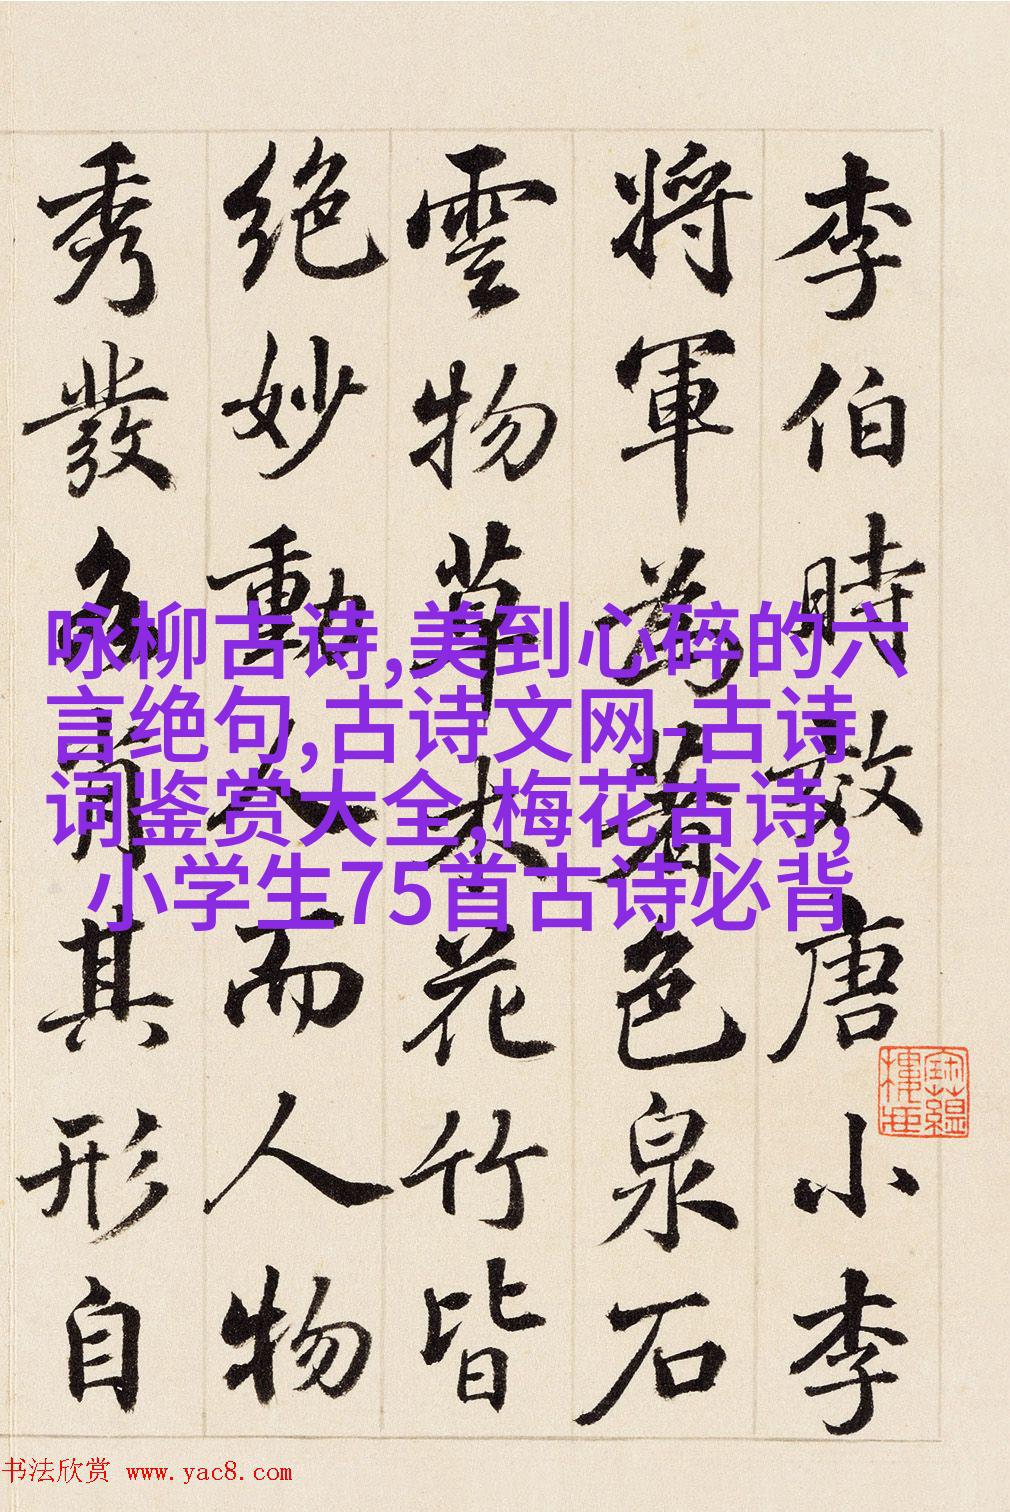 李伯時效唐小李
將軍為著色泉石
雲物草木花竹皆
絶妙動人而人物
秀發多肖其形自
咏柳古诗,美到心碎的六
言绝句,古诗文网-古诗
词鉴赏大全,梅花古诗,
小学生75首古诗必背
书法欣赏 www.yac8.com